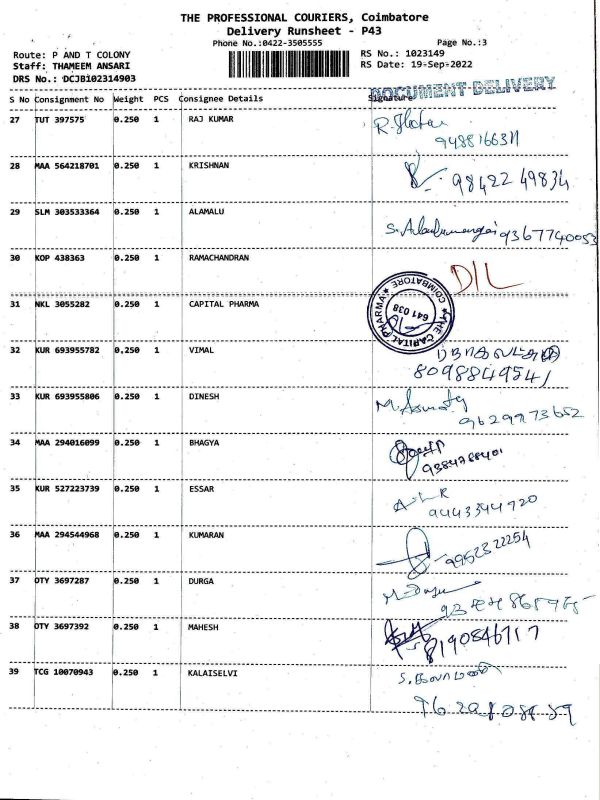 THE PROFESSIONAL COURIERS, Coimbatore
Delivery Runsheet - P43
Phone No.:0422-3505555 Page No.:3
Route: P AND T COLONY RS No.: 1023149
Staff: THAMEEM ANSARI RS Date: 19-Sep-2022
DRS No.: DCJB102314903
DOCUMENT DELIVERY
S No Consignment No Weight PCS Consignee Details Signature
27 TUT 397575 0.250 1 RAJ KUMAR
28 MAA 564218701 0.250 1 KRISHNAN
9842249834
29 SLM 303533364 0.250 1 ALAMALU
9367740053
30 KOP 438363 0.250 1 RAMACHANDRAN
D/L
31 NKL 3055282 0.250 1 CAPITAL PHARMA
★ THE CAPITAL PHARMA ★ COIMBATORE
641 038
32 KUR 693955782 0.250 1 VIMAL
8098849541
33 KUR 693955806 0.250 1 DINESH
9629973652
34 MAA 294016099 0.250 1 BHAGYA
9384788401
35 KUR 527223739 0.250 1 ESSAR
9443344720
36 MAA 294544968 0.250 1 KUMARAN
9952322254
37 OTY 3697287 0.250 1 DURGA
38 OTY 3697392 0.250 1 MAHESH
8190846717
39 TCG 10070943 0.250 1 KALAISELVI